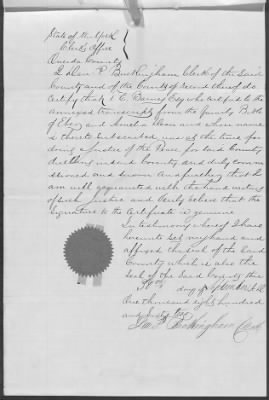 State of New York
Clerk's Office
Oneida County
Buckingham, Clerk of the Said
County and of the Courts of Record thereof do
Certify that Barnes Esq who certified to the
annexed transcript from the family Bible
of and and whose name
is thereto Subscribed was at the time of so
doing a Justice of the Peace for said County,
dwelling in said County and duly commis
sioned and sworn And further that I
am well acquainted with the hand writing
of such Justice and verily believe that the
signature to the Certificate is genuine
In testimony whereof I have
hereunto set my hand and
affixed the Seal of the Said
County which is also the
Seal of the Said Courts this
day of A.D.
One thousand eight hundred
and sixty two
Buckingham Clerk